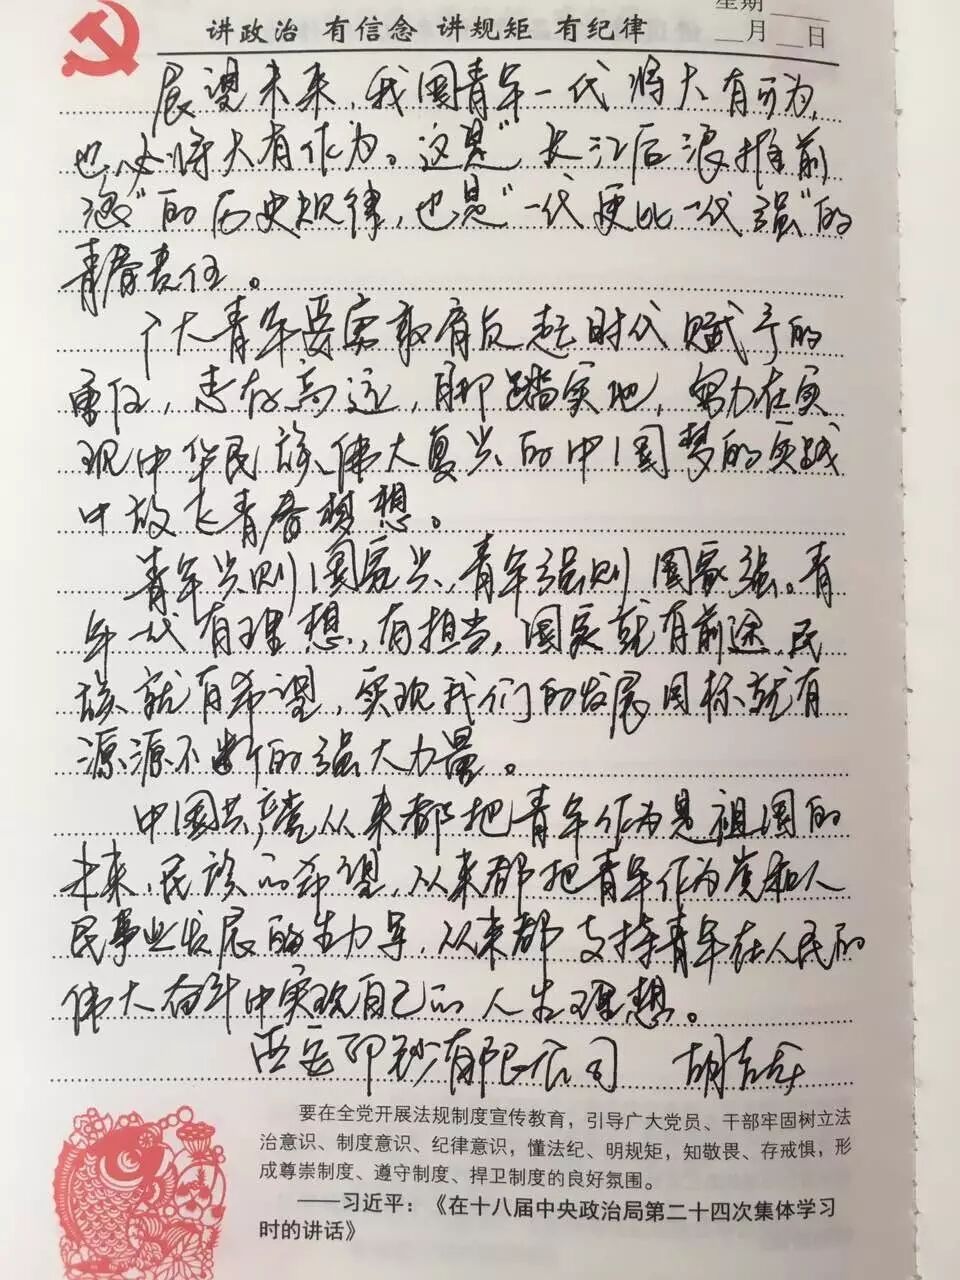 讲政治 有信念 讲规矩 有纪律
星期
月 日
展望未来，我国青年一代将大有可为，
也必将大有作为。这是"长江后浪推前
浪"的历史规律，也是"一代更比一代强"的
青春责任。
广大青年要勇敢肩负起时代赋予的
重任，志存高远，脚踏实地，努力在实
现中华民族伟大复兴的中国梦的实践
中放飞青春梦想。
青年兴则国家兴，青年强则国家强。青
年一代有理想，有担当，国家就有前途，民
族就有希望，实现我们的发展目标就有
源源不断的强大力量。
中国共产党从来都把青年作为是祖国的
未来，民族的希望，从来都把青年作为党和人
民事业发展的生力军，从来都支持青年在人民的
伟大奋斗中实现自己的人生理想。
西安印钞有限公司 胡
要在全党开展法规制度宣传教育，引导广大党员、干部牢固树立法
治意识、制度意识、纪律意识，懂法纪、明规矩，知敬畏、存戒惧，形
成尊崇制度、遵守制度、捍卫制度的良好氛围。
——习近平：《在十八届中央政治局第二十四次集体学习
时的讲话》